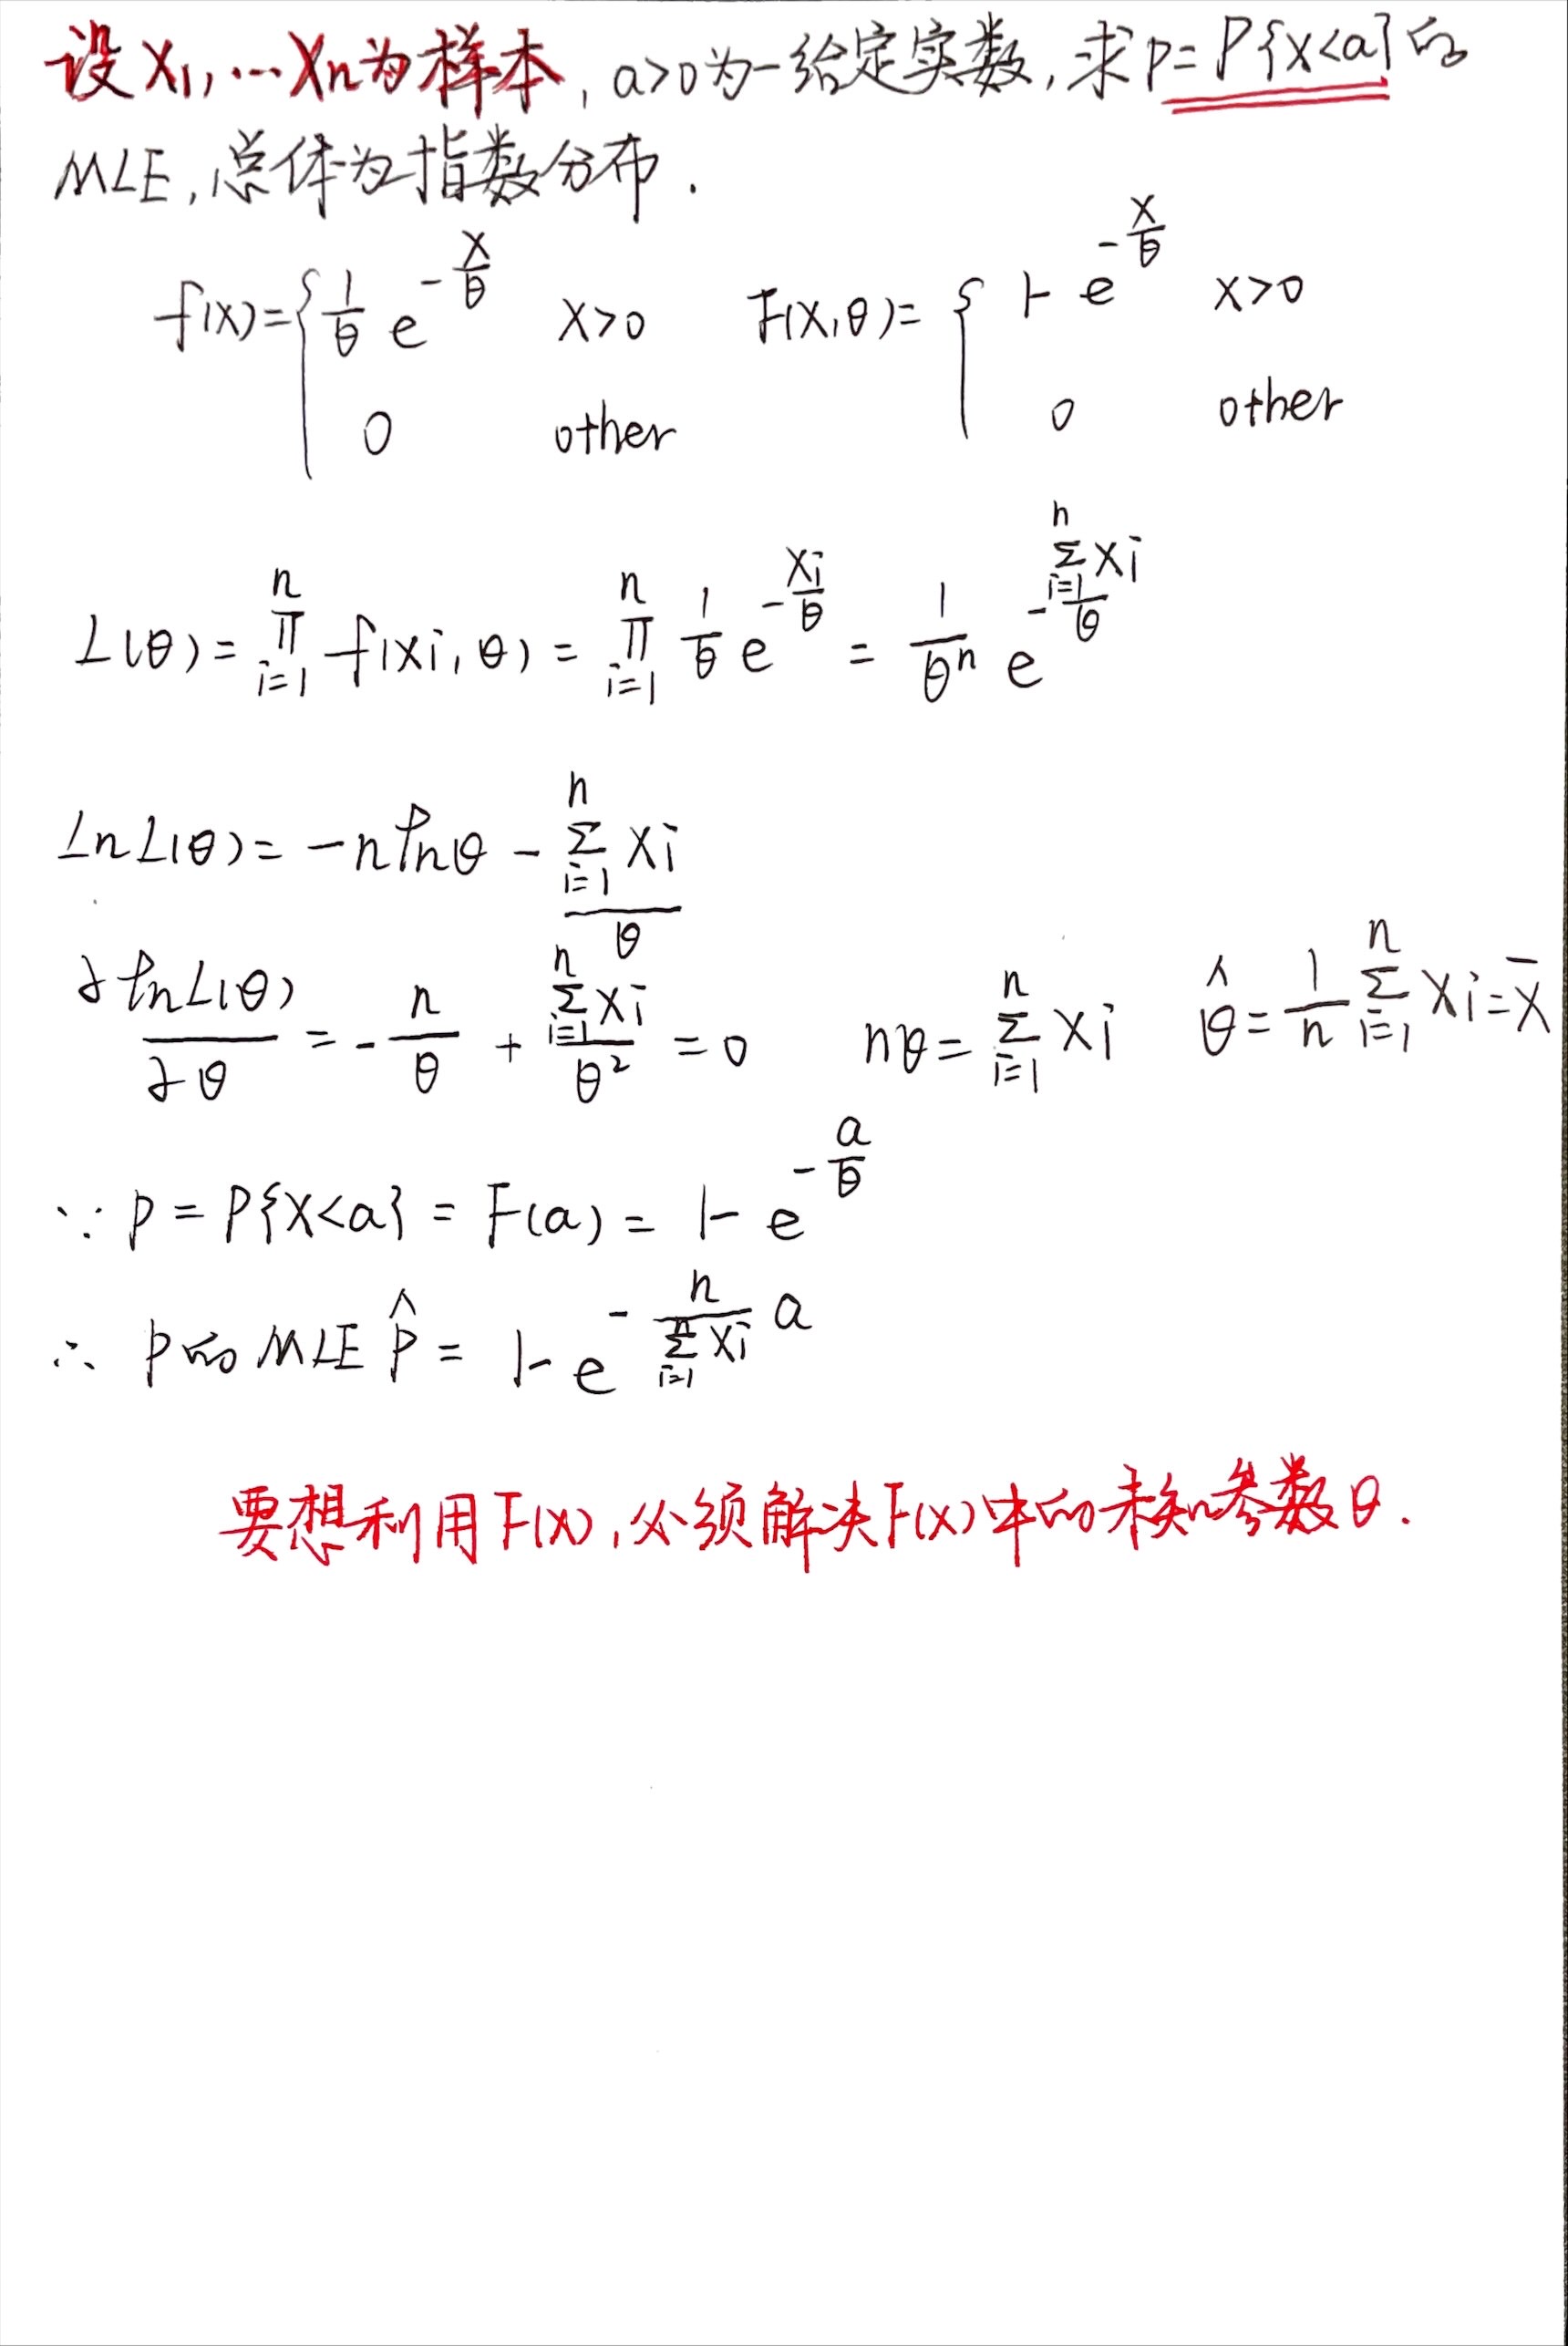 设X₁,…Xn为样本, a>0为一给定实数, 求p=P{X<a}的
MLE, 总体为指数分布.
f(x)={ 1/θ e^(-x/θ) x>0 F(X,θ)={ 1-e^(-x/θ) x>0
0 other 0 other
L(θ)=∏_{i=1}^{n} f(xi,θ)=∏_{i=1}^{n} 1/θ e^(-xi/θ) = 1/θⁿ e^(-∑_{i=1}^{n}xi/θ)
Ln L(θ)= -n lnθ - ∑_{i=1}^{n}xi/θ
∂lnL(θ)/∂θ = -n/θ + ∑_{i=1}^{n}xi/θ² = 0 nθ=∑_{i=1}^{n}xi θ̂=1/n ∑_{i=1}^{n}Xi=X̄
∵ p = P{X<a} = F(a) = 1-e^(-a/θ)
∴ p的MLE p̂ = 1-e^(-n/∑_{i=1}^{n}xi a)
要想利用F(x), 必须解决F(x)中的未知参数θ.